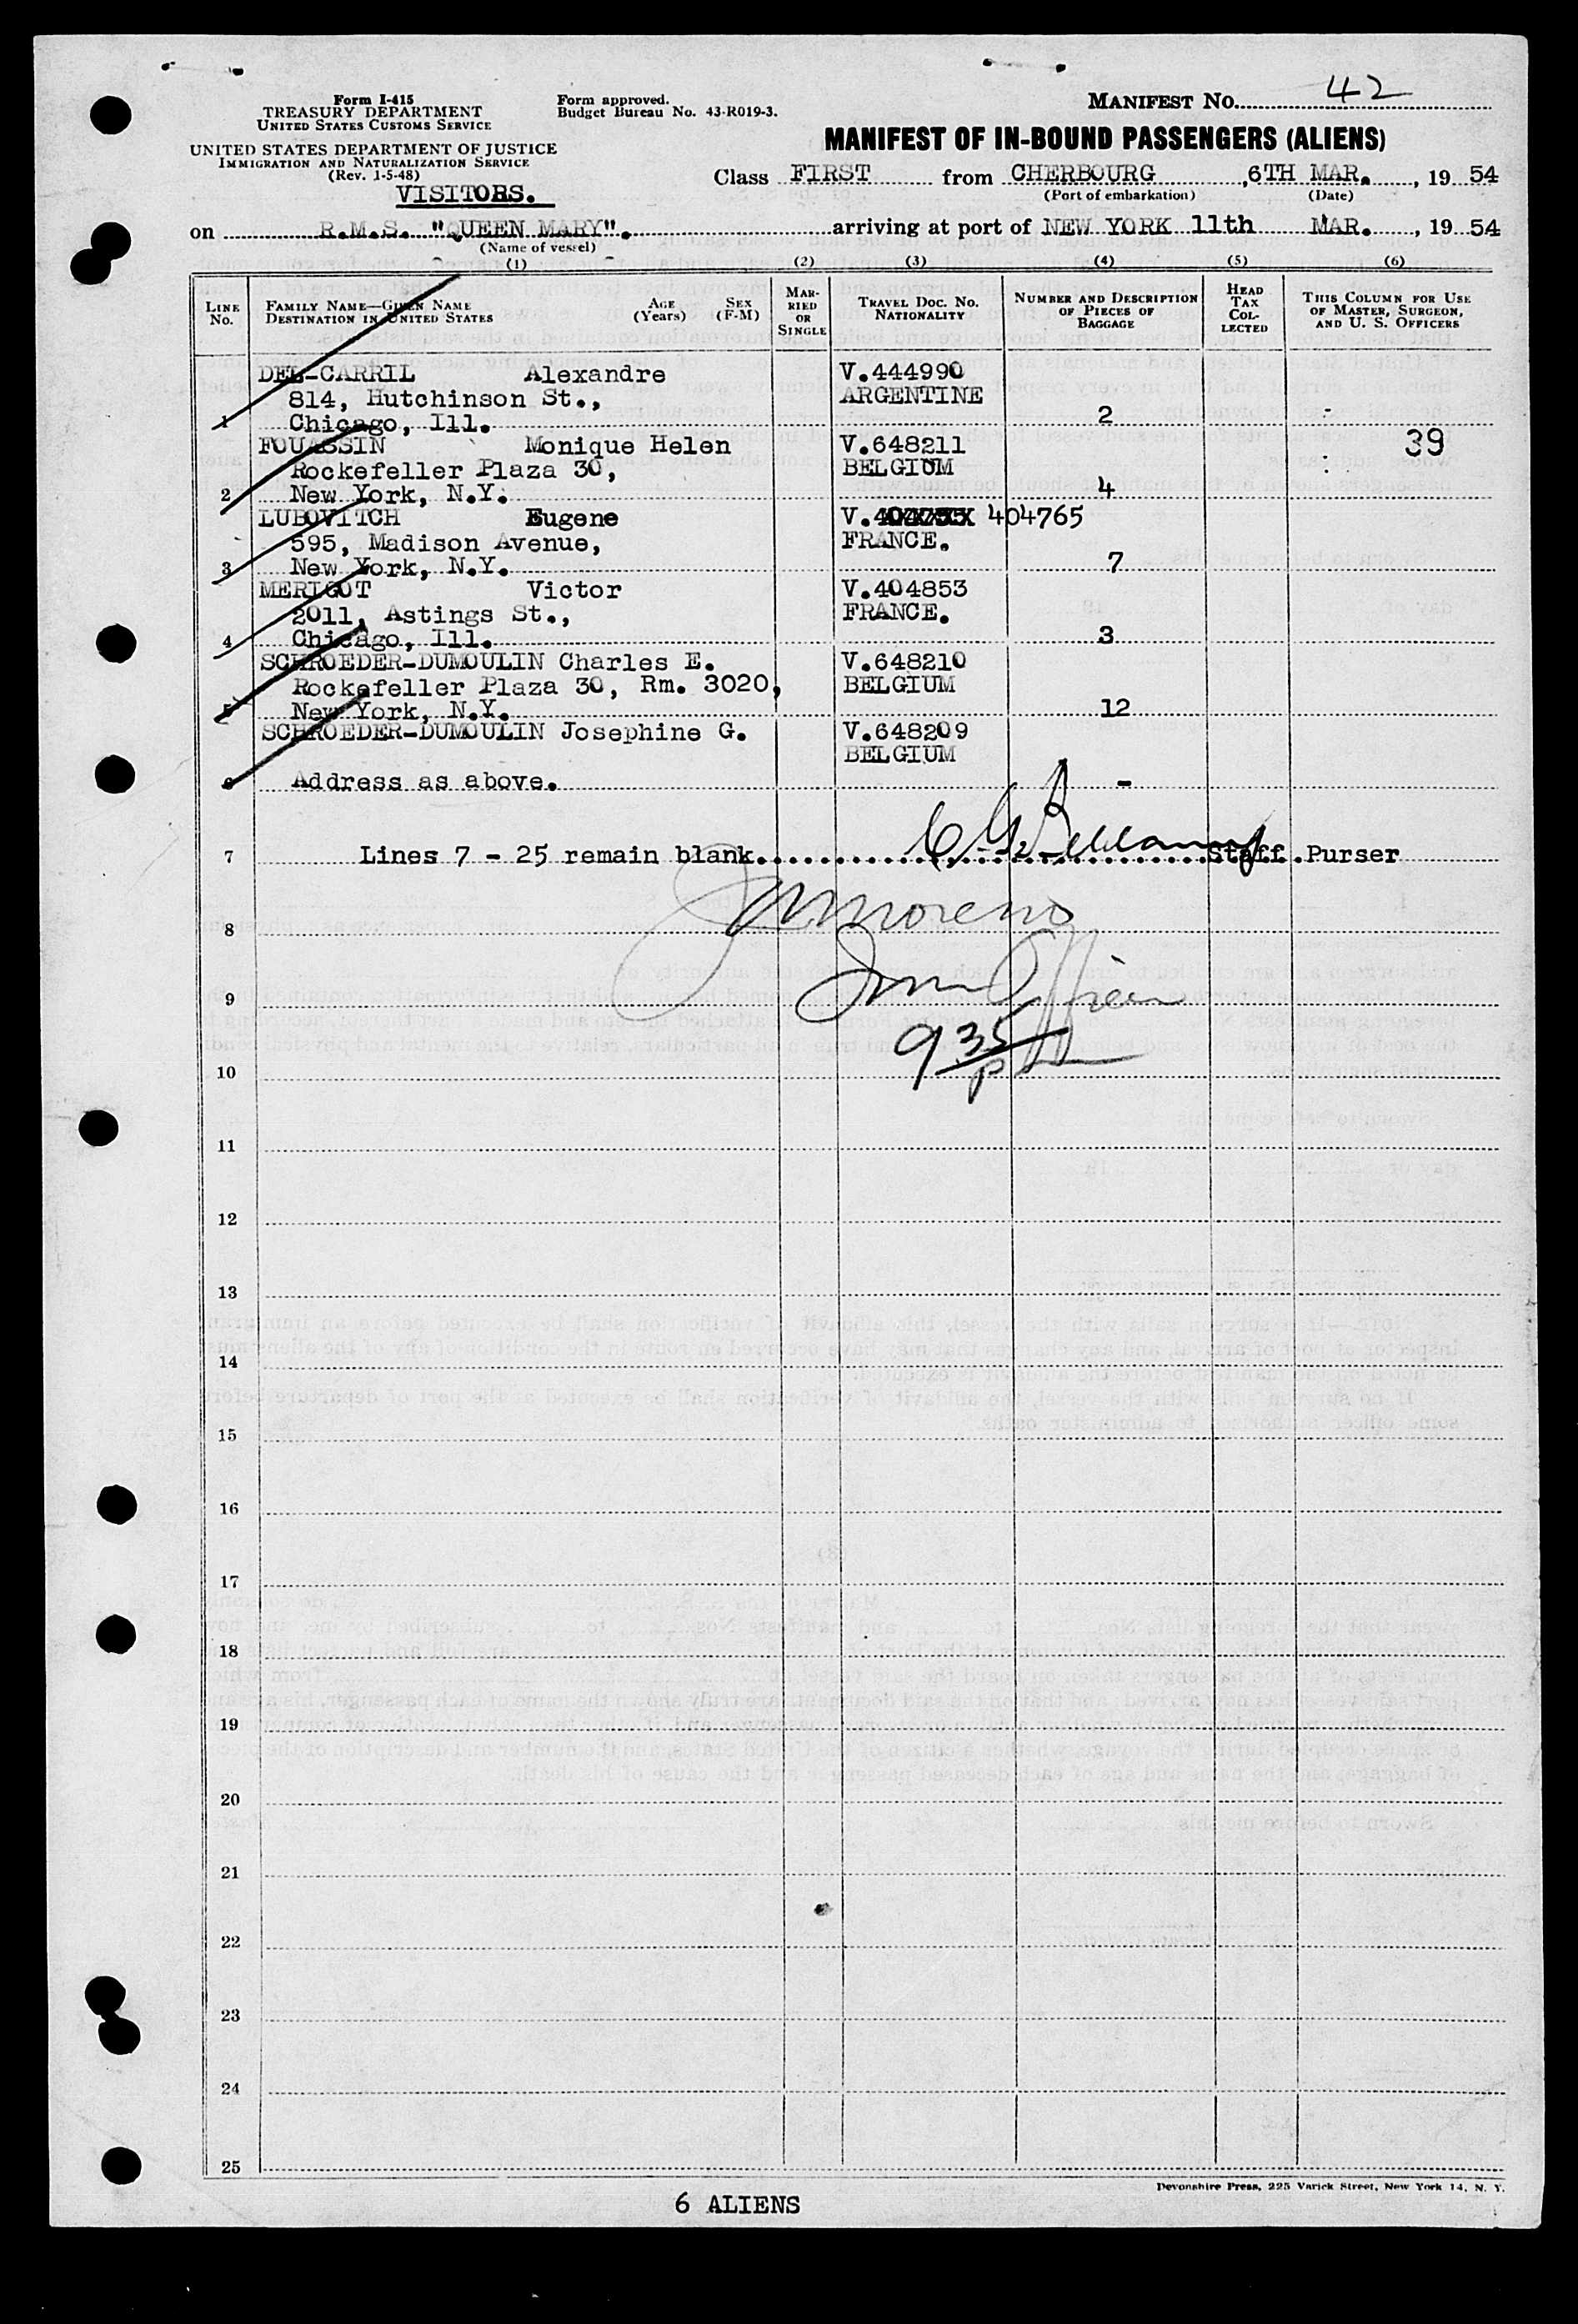 Form I-415
TREASURY DEPARTMENT
UNITED STATES CUSTOMS SERVICE
UNITED STATES DEPARTMENT OF JUSTICE
IMMIGRATION AND NATURALIZATION SERVICE
(Rev. 1-5-48)
VISITORS.
Form approved.
Budget Bureau No. 43-R019-3.
MANIFEST NO. 42
MANIFEST OF IN-BOUND PASSENGERS (ALIENS)
Class FIRST from CHERBOURG, 6TH MAR., 19 54
(Port of embarkation) (Date)
on R.M.S. "QUEEN MARY". arriving at port of NEW YORK 11th MAR., 19 54
(Name of vessel)
(1) (2) (3) (4) (5) (6)
LINE No. FAMILY NAME—GIVEN NAME DESTINATION IN UNITED STATES AGE (Years) SEX (F-M) MARRIED OR SINGLE TRAVEL DOC. NO. NATIONALITY NUMBER AND DESCRIPTION OF PIECES OF BAGGAGE HEAD TAX COLLECTED THIS COLUMN FOR USE OF MASTER, SURGEON, AND U. S. OFFICERS
DEL-CARRIL Alexandre V.444990
814, Hutchinson St., ARGENTINE
1 Chicago, Ill. 2
FOUASSIN Monique Helen V.648211 39
Rockefeller Plaza 30, BELGIUM
2 New York, N.Y. 4
LUBOVITCH Eugene V. 404765
595, Madison Avenue, FRANCE.
3 New York, N.Y. 7
MERIGOT Victor V.404853
2011, Astings St., FRANCE.
4 Chicago, Ill. 3
SCHROEDER-DUMOULIN Charles E. V.648210
Rockefeller Plaza 30, Rm. 3020, BELGIUM
5 New York, N.Y. 12
SCHROEDER-DUMOULIN Josephine G. V.648209
BELGIUM
6 Address as above. -
7 Lines 7 - 25 remain blank. Staff Purser
8 Moreno
9
9 35/P
10
11
12
13
14
15
16
17
18
19
20
21
22
23
24
25
Devonshire Press, 225 Varick Street, New York 14, N. Y.
6 ALIENS